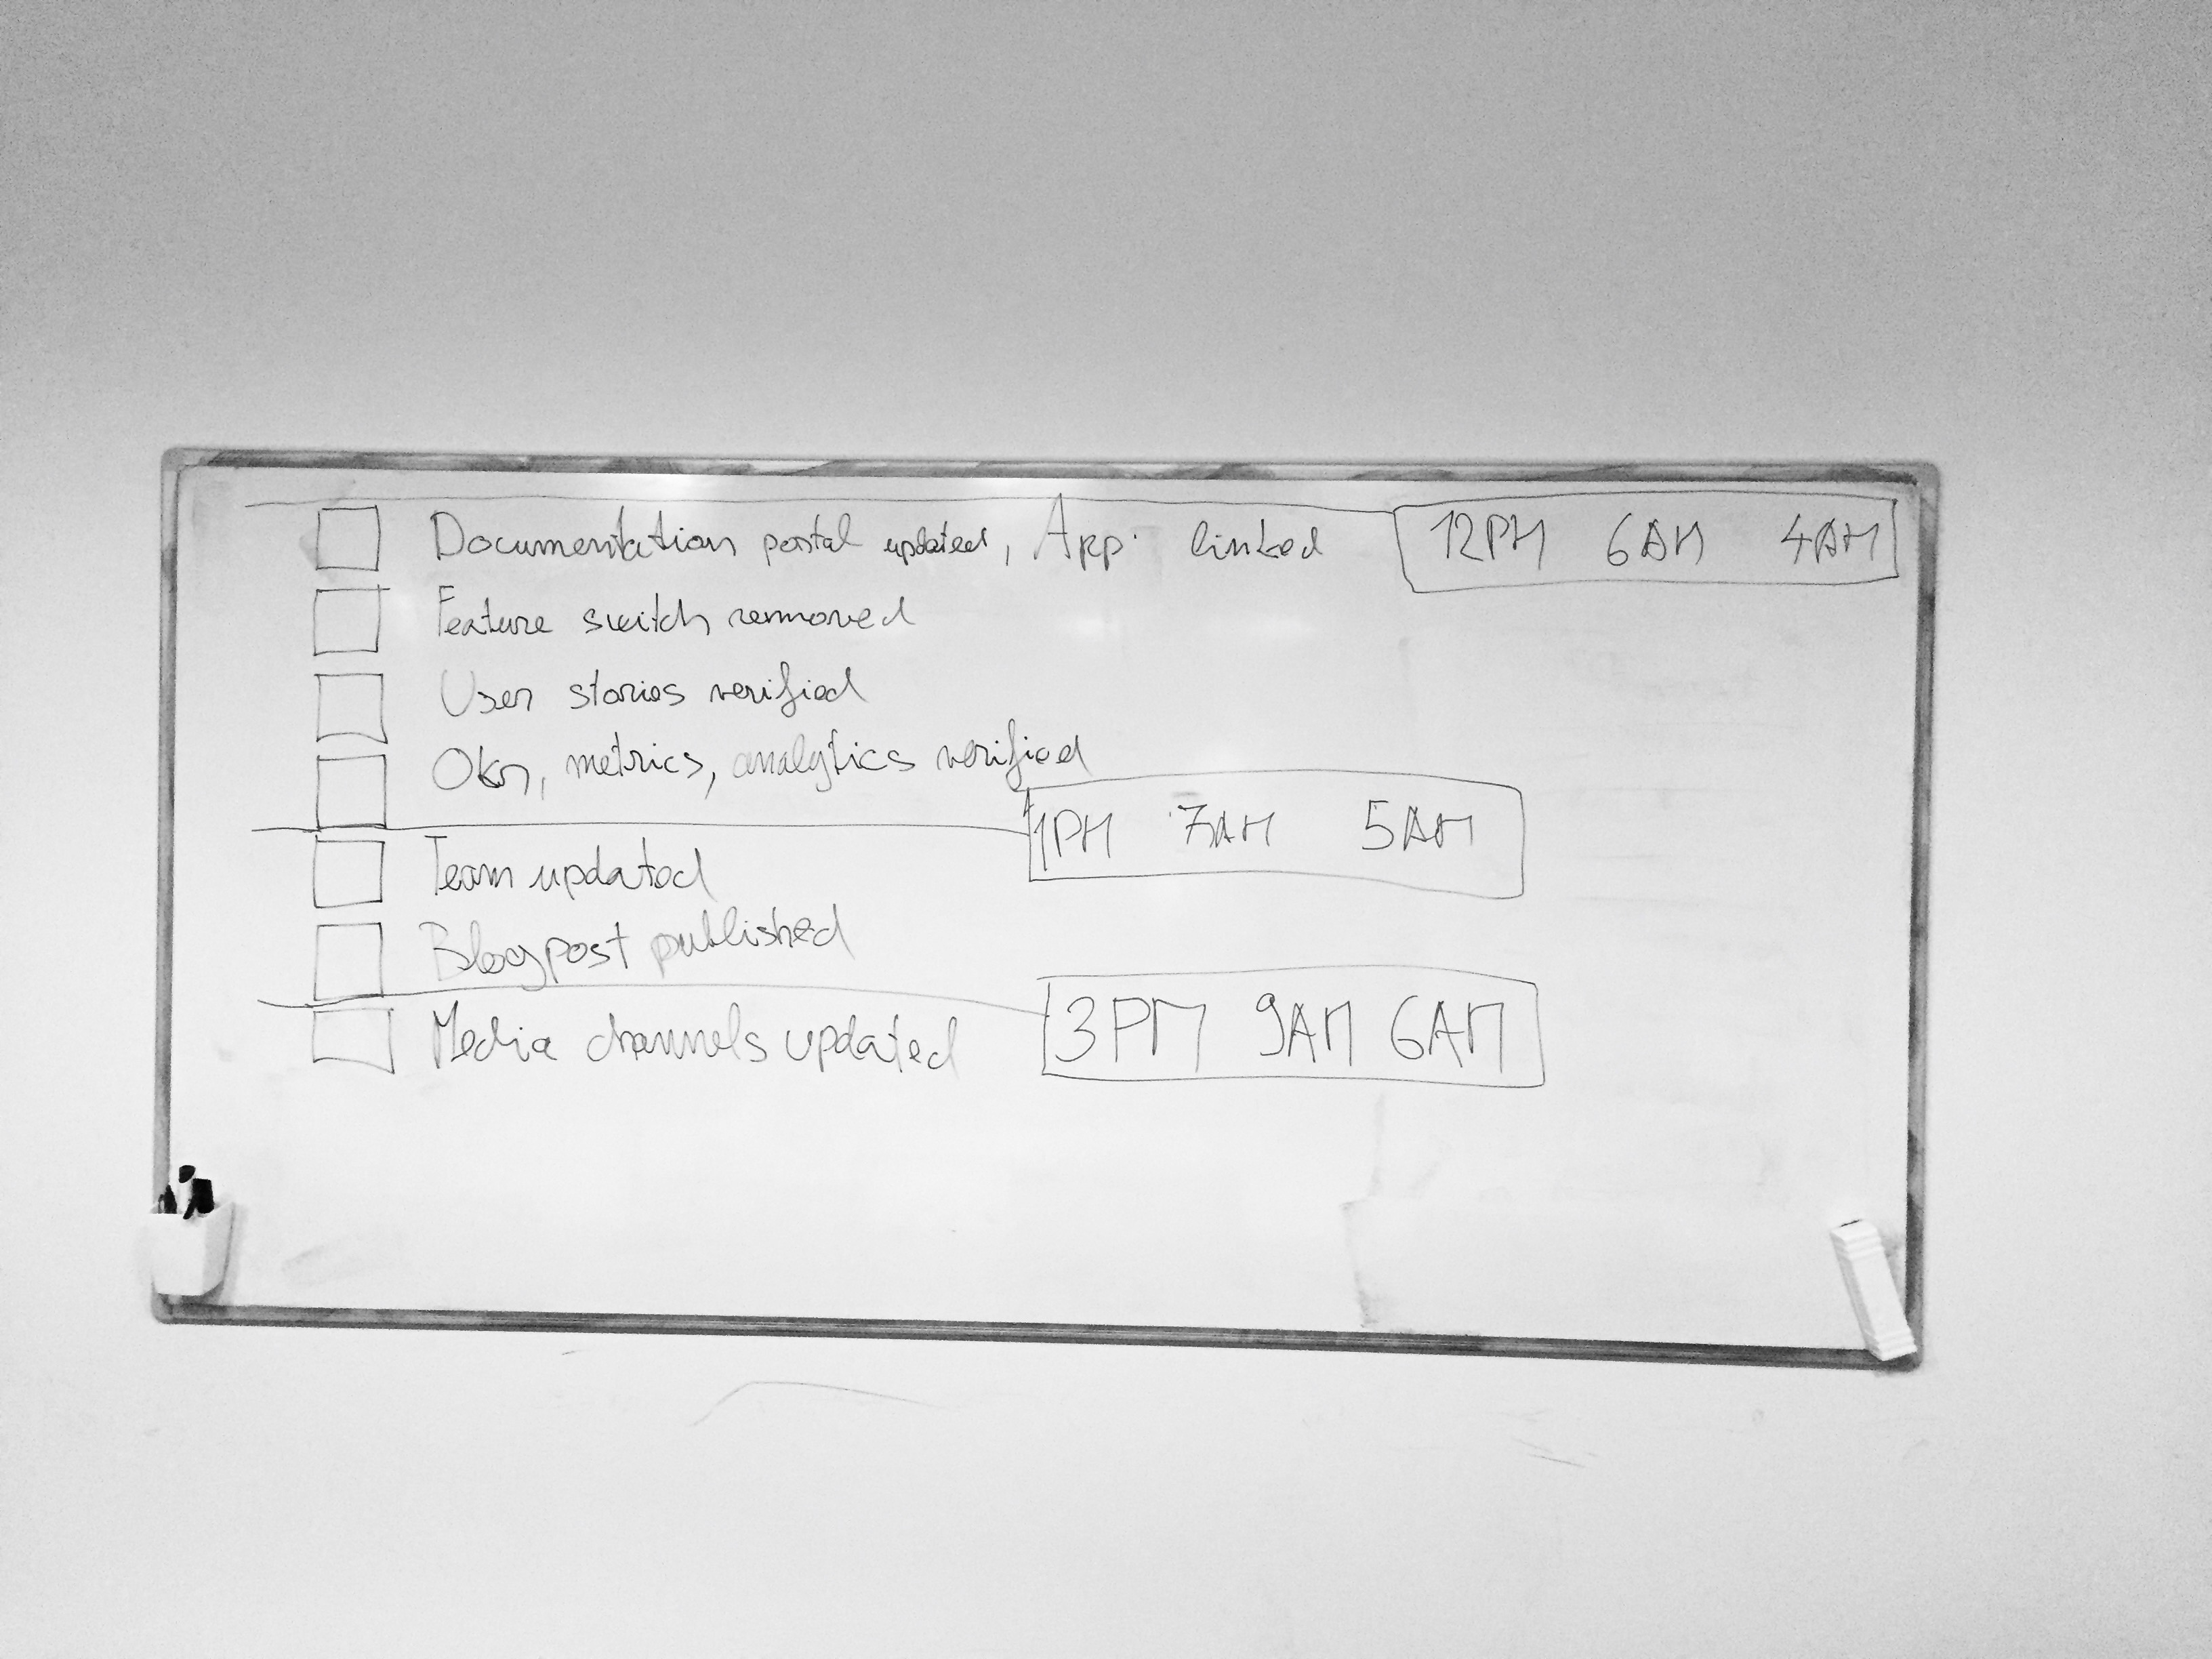 Documentation portal updated, App. linked 12PM 6AM 4AM
Feature switch removed
User stories verified
Okr, metrics, analytics verified
1PM 7AM 5AM
Team updated
Blogpost published
Media channels updated 3PM 9AM 6AM